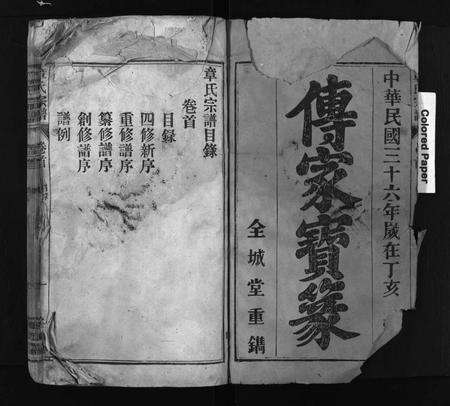 中華民國三十六年歲在丁亥
傳家寶篆
全城堂重鐫
Colored Paper
章氏宗譜目錄
卷首
目錄
四修新序
重修譜序
纂修譜序
創修譜序
譜例
章氏宗譜
卷首